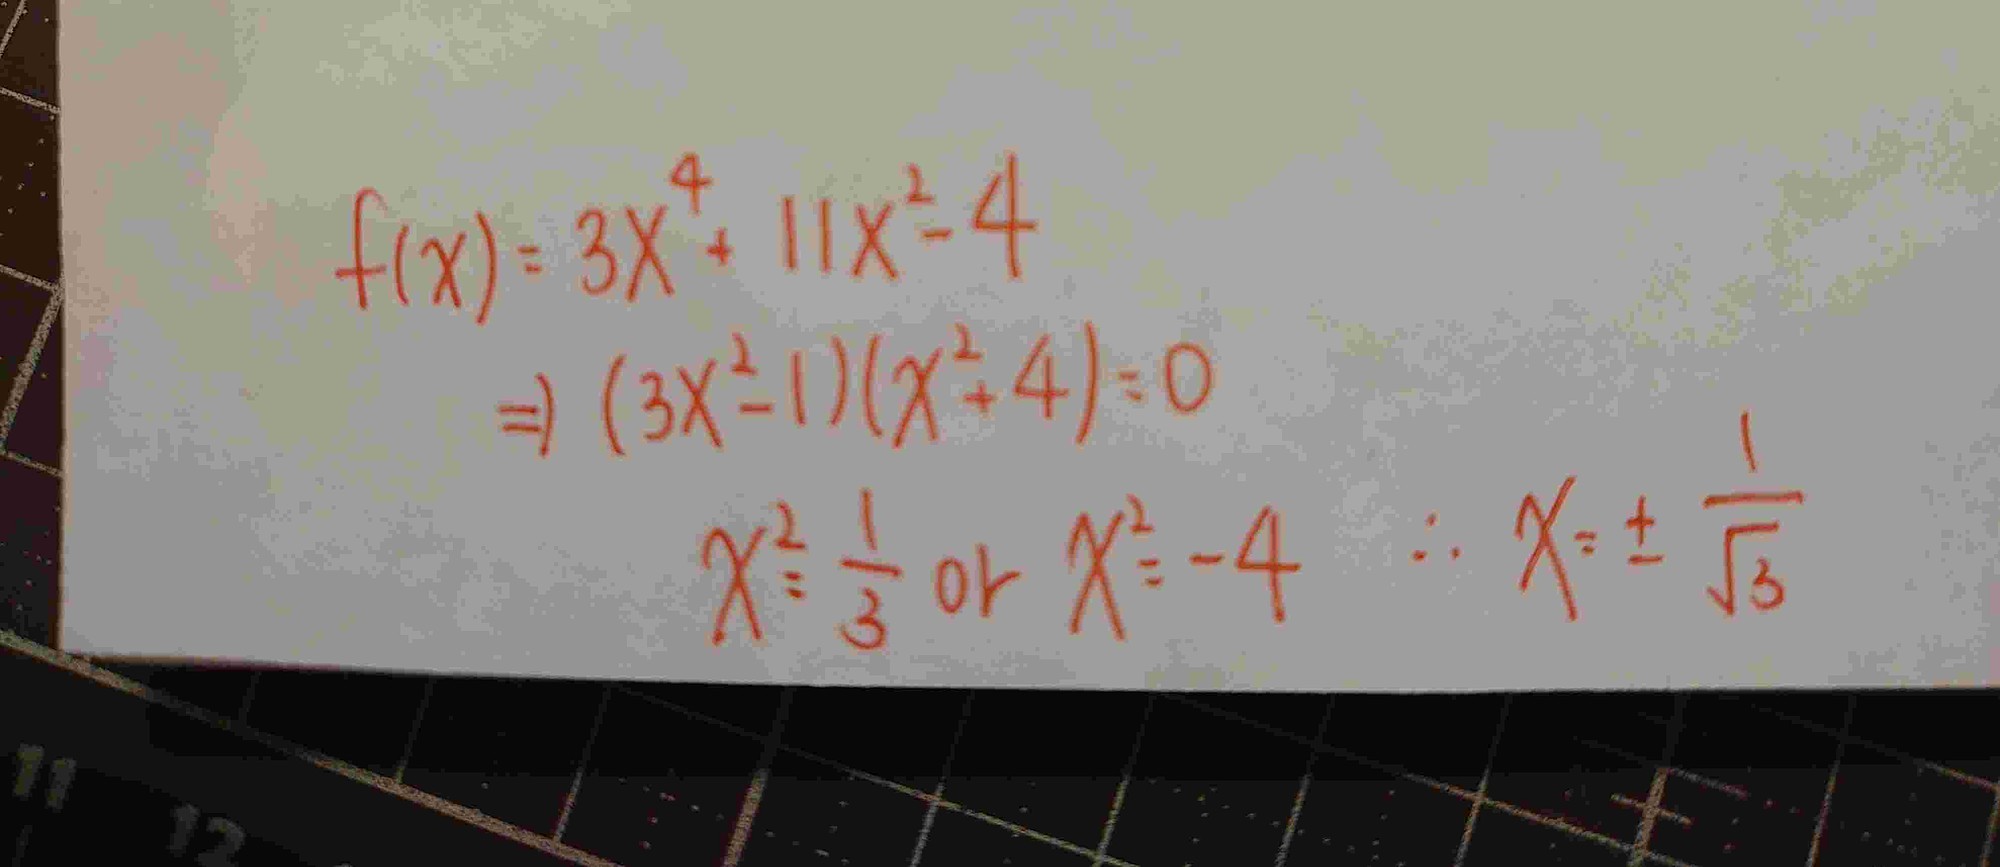 f(x) = 3x⁴ + 11x² - 4
⇒ (3x² - 1)(x² + 4) = 0
x² = 1/3 or x² = -4 ∴ x = ± 1/√3
11
12